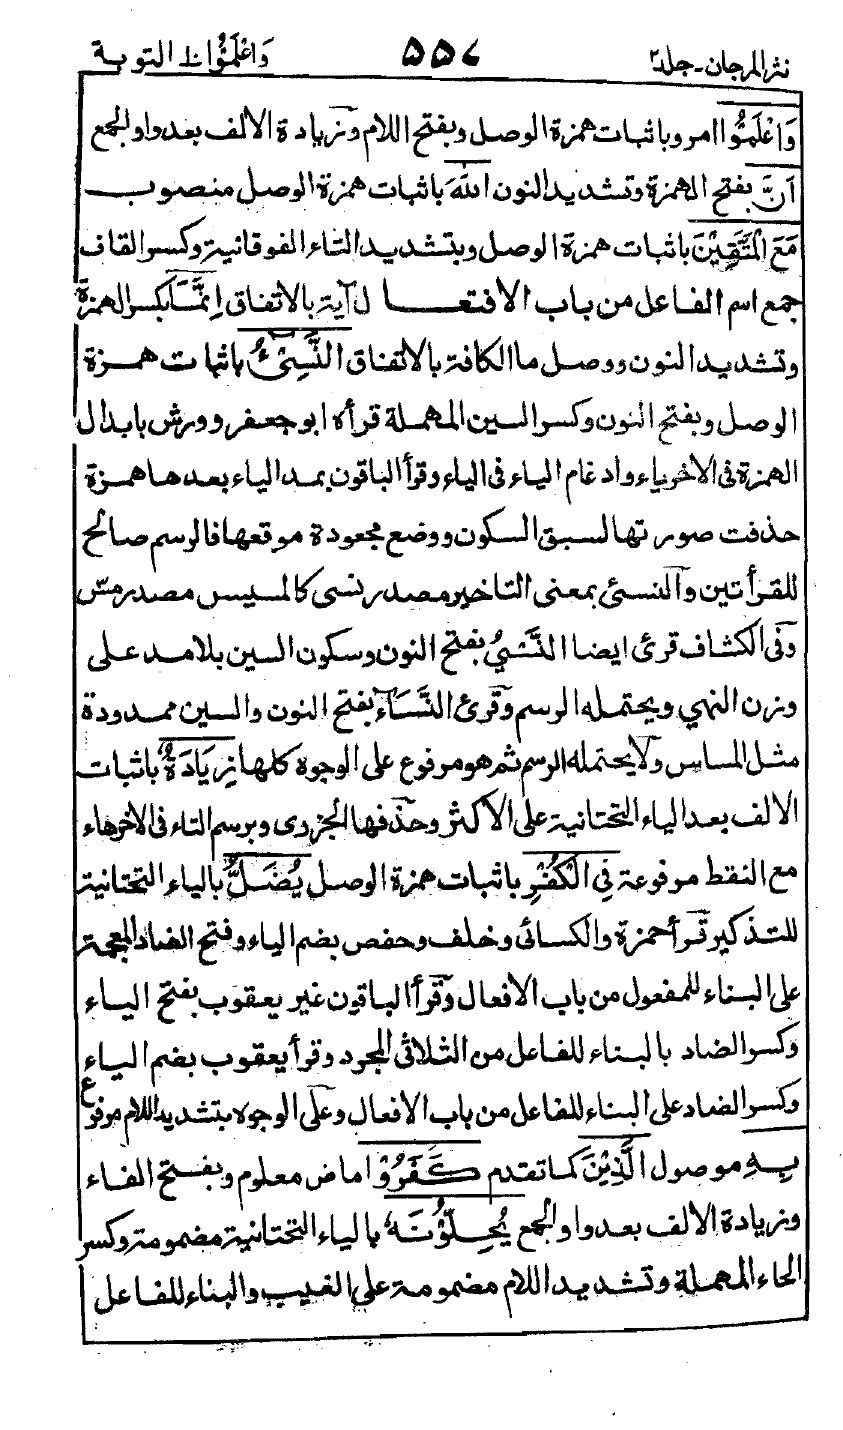 نثر المرجان - جلد٢ ٥٥٧ وَاعْلَمُوْا ١٠ التوبة
وَاعْلَمُوْا امر وباثبات همزة الوصل وبفتح اللام وزيادة الالف بعد واو الجمع
اَنَّ بفتح الهمزة وتشديد النون اللهَ باثبات همزة الوصل منصوب
مَعَ الْمُتَّقِيْنَ باثبات همزة الوصل وبتشديد التاء الفوقانية وكسر القاف
جمع اسم الفاعل من باب الافتعال آية بالاتفاق اِنَّمَا بكسر الهمزة
وتشديد النون ووصل ما الكافة بالاتفاق النَّسِیْٓءُ باثبات همزة
الوصل وبفتح النون وكسر السين المهملة قرأه ابو جعفر وورش بابدال
الهمزة فى الاخر ياء وادغام الياء فى الياء وقرأ الباقون بمد الياء بعدها همزة
حذفت صورتها لسبق السكون ووضع مجعودة موقعها فالرسم صالح
للقرأتين والنسئ بمعنى التاخير مصدر نسى كالمسيس مصدر مسّ
وفى الكشاف قرئ ايضا النَّسْیُ بفتح النون وسكون السين بلا مد على
وزن النهي ويحتمله الرسم وقرئ النَّسَآءُ بفتح النون والسين ممدودة
مثل المساس ولا يحتمله الرسم ثم هو مرفوع على الوجوه كلها زِيَادَةٌ باثبات
الالف بعد الياء التحتانية على الاكثر وحذفها الجزرى وبرسم التاء فى الاخر هاء
مع النقط مرفوعة فِى الْكُفْرِ باثبات همزة الوصل يُضَلُّ بالياء التحتانية
للتذكير قرأ حمزة والكسائى وخلف وحفص بضم الياء وفتح الضاد المعجمة
على البناء للمفعول من باب الافعال وقرأ الباقون غير يعقوب بفتح الياء
وكسر الضاد بالبناء للفاعل من الثلاثى المجرد وقرأ يعقوب بضم الياء
وكسر الضاد على البناء للفاعل من باب الافعال وعلى الوجوه بتشديد اللام مرفوع
بِهِ موصول الَّذِيْنَ كما تقدم كَفَرُوْا ماض معلوم وبفتح الفاء
وزيادة الالف بعد واو الجمع يُحِلُّوْنَهٗ بالياء التحتانية مضمومة وكسر
الحاء المهملة وتشديد اللام مضمومة على الغيب والبناء للفاعل